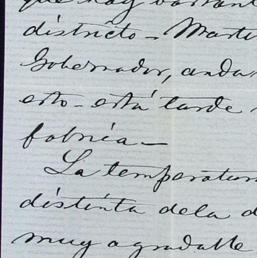 que hay barran
districto - Marti
Gobernador, anda
esto - está tarde
fabrica -
La temperatur
distinta de la d
muy agradable